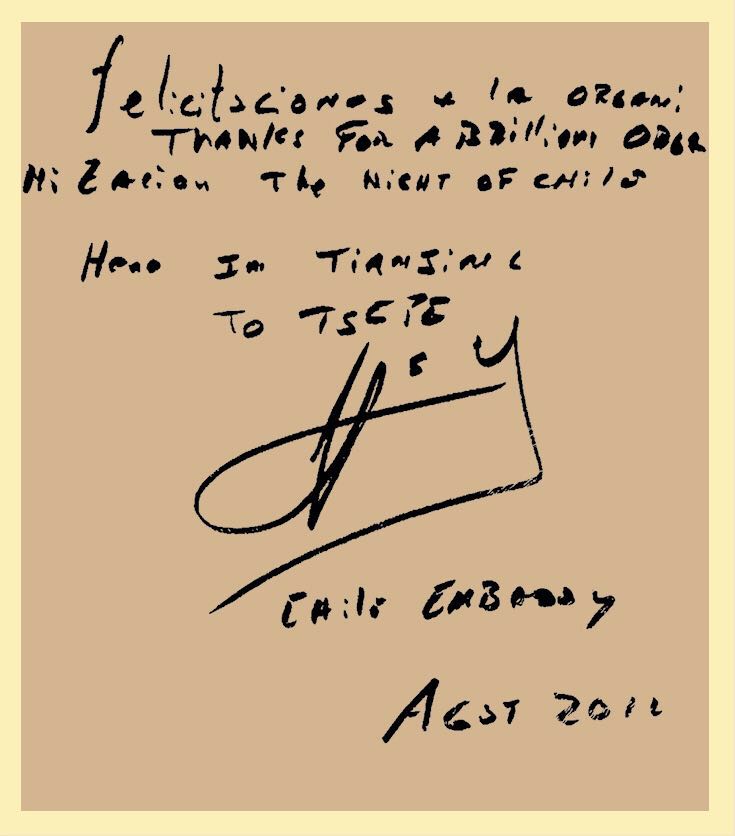 felicitaciones a la ORGANi
THANKS FOR A BRilliant ORGA
NiZAcion The NIGHT OF CHile
Here In TIANJIN
TO TSEPE
CHile EMBASSY
AGST 2012